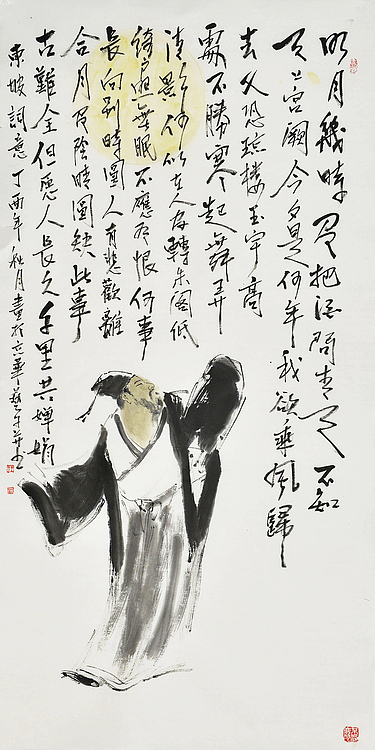 明月幾時有把酒問青天不知
天上宫闕今夕是何年我欲乘風歸
去又恐琼楼玉宇高
處不勝寒起舞弄
清影何似在人间轉朱阁低
绮户照無眠不應有恨何事
長向别時圓人有悲歡離
合月有陰晴圓缺此事
古難全但愿人長久千里共嬋娟
東坡詞意丁酉年秋月畫於京華